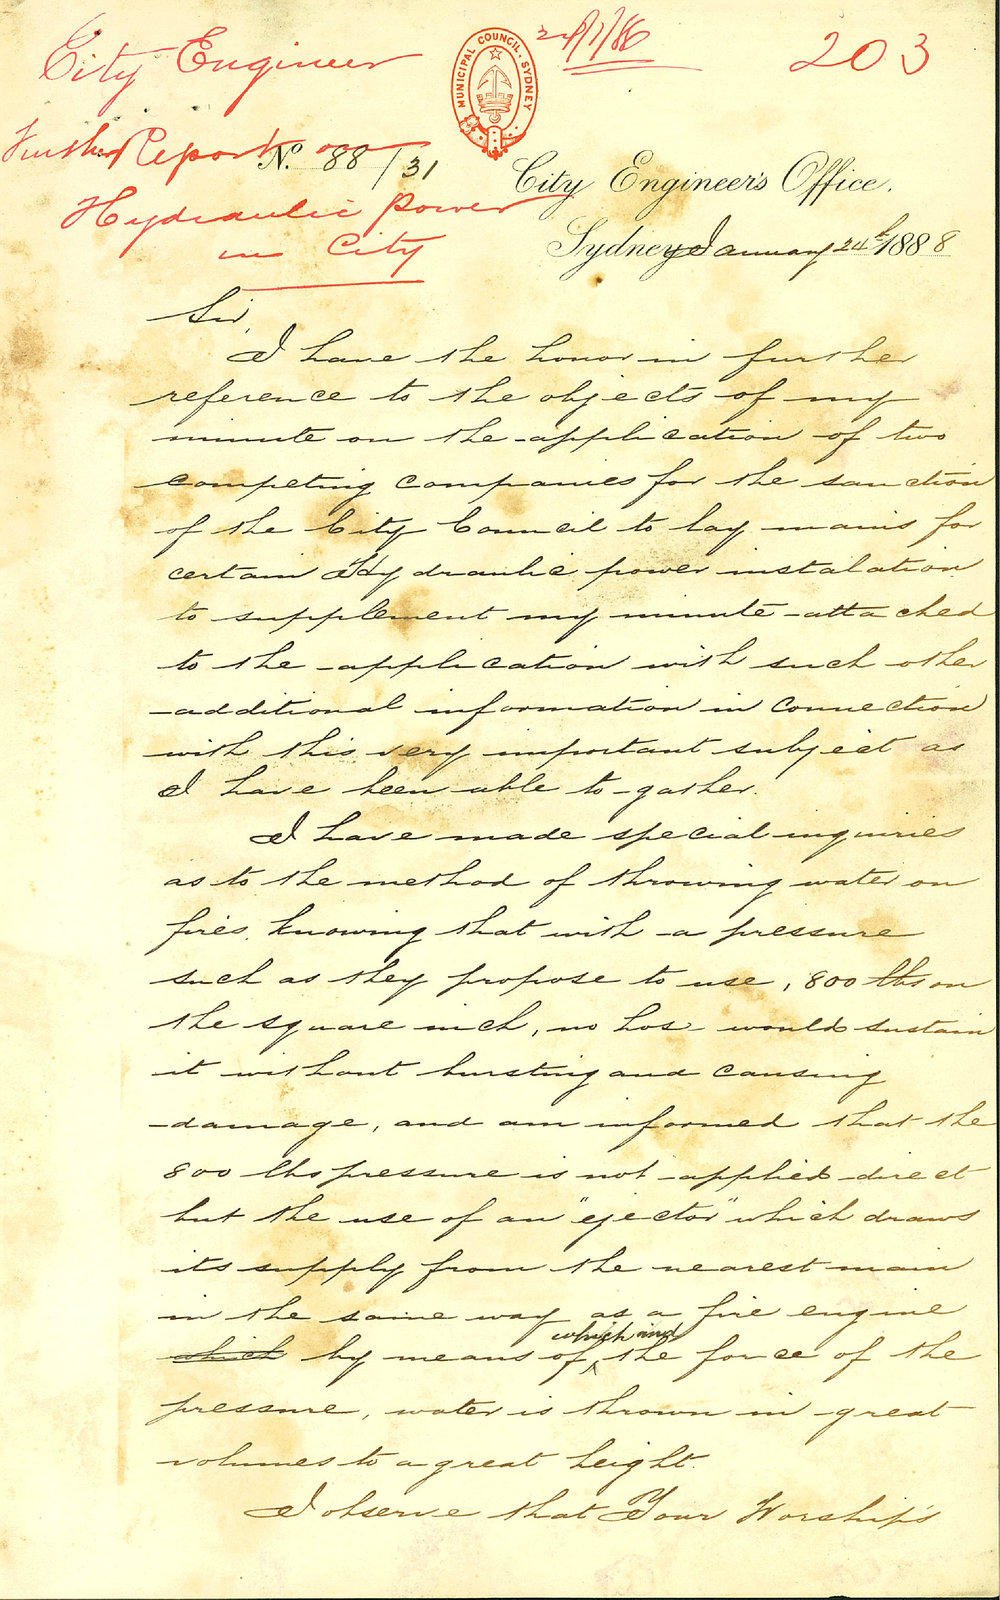 City Engineer
203
Further Report on
Hydraulic Power
in City
MUNICIPAL COUNCIL. SYDNEY
No. 88/31
City Engineer's Office.
Sydney January 24th 1888
Sir,
I have the honor in further
reference to the objects of my
minute on the application of two
competing companies for the sanction
of the City Council to lay mains for
certain Hydraulic power instalation
to supplement my minute attached
to the application with such other
additional information in connection
with this very important subject as
I have been able to gather.
I have made special inquiries
as to the method of throwing water on
fires, knowing that with a pressure
such as they propose to use, 800 lbs on
the square inch, no hose would sustain
it without bursting and causing
damage, and am informed that the
800 lbs pressure is not applied direct
but the use of an "ejector" which draws
its supply from the nearest main
in the same way as a fire engine
which by means of which and the force of the
pressure, water is thrown in great
volumes to a great height.
I observe that Your Worship's